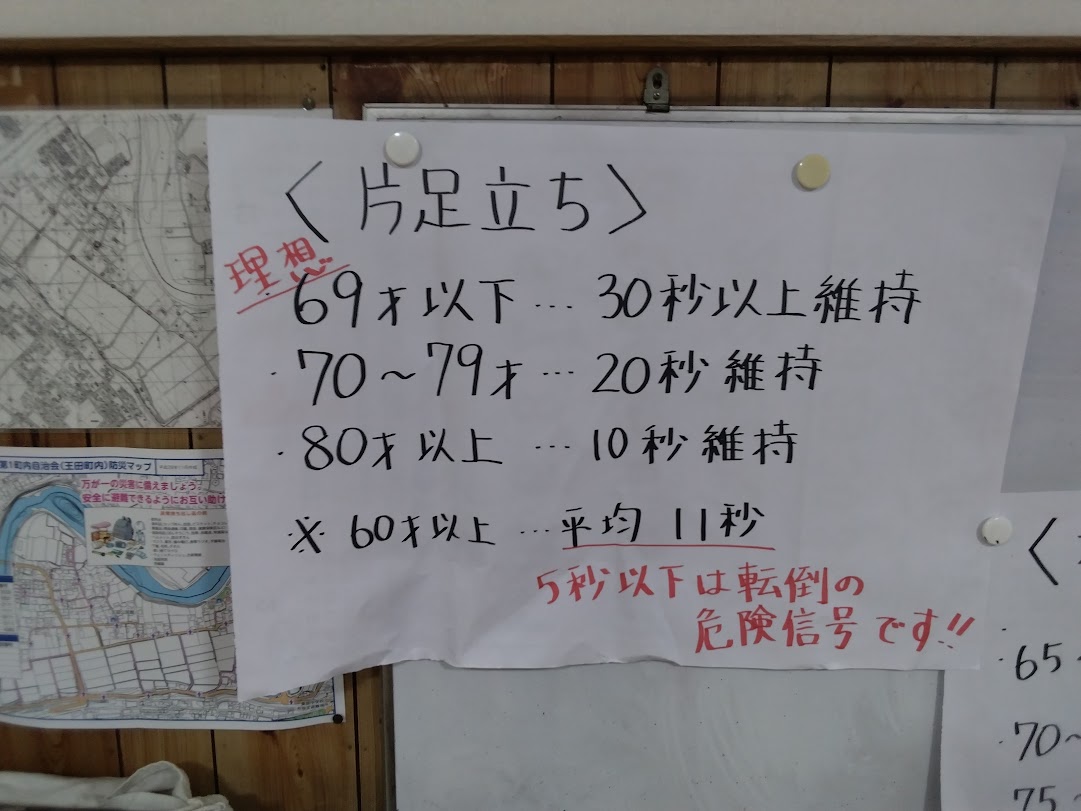 〈片足立ち〉
理想
・69才以下…30秒以上維持
・70～79才…20秒維持
・80才以上…10秒維持
※60才以上…平均11秒
5秒以下は転倒の
危険信号です!!
第1町内自治会(王田町内)防災マップ
万が一の災害に備えましょう。
安全に避難できるようにお互い助け
〈
・65
・70～
75